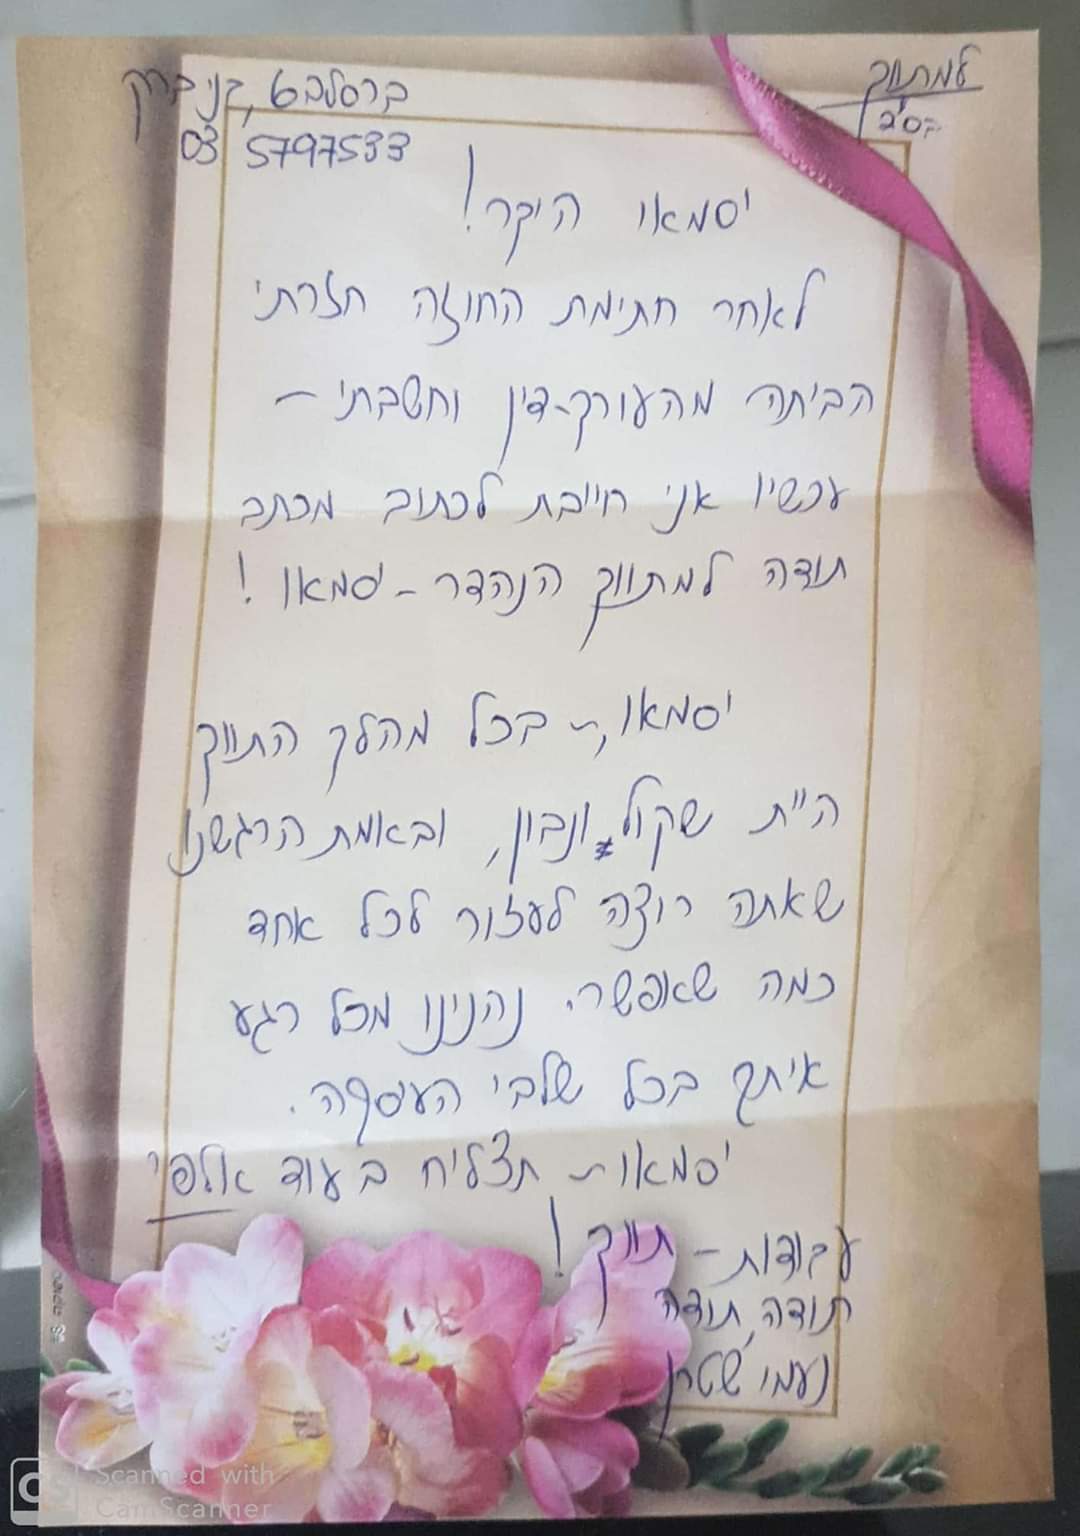 למתווך
בס"ד
ברסלב 6, בני ברק
03 5797533
יסמאו היקר!
לאחר חתימת החוזה חזרתי
הביתה מהעורך-דין וחשבתי -
עכשיו אני חייבת לכתוב מכתב
תודה למתווך הנהדר - יסמאו!
יסמאו, - בכל מהלך התווך
היית שקול ונבון, ובאמת הרגשנו
שאתה רוצה לעזור לכל אחד
כמה שאפשר. נהנינו מכל רגע
איתך בכל שלבי העסקה.
יסמאו - תצליח בעוד אלפי
עבודות - תווך!
תודה, תודה
נעמי שטרן
Scanned with
CamScanner